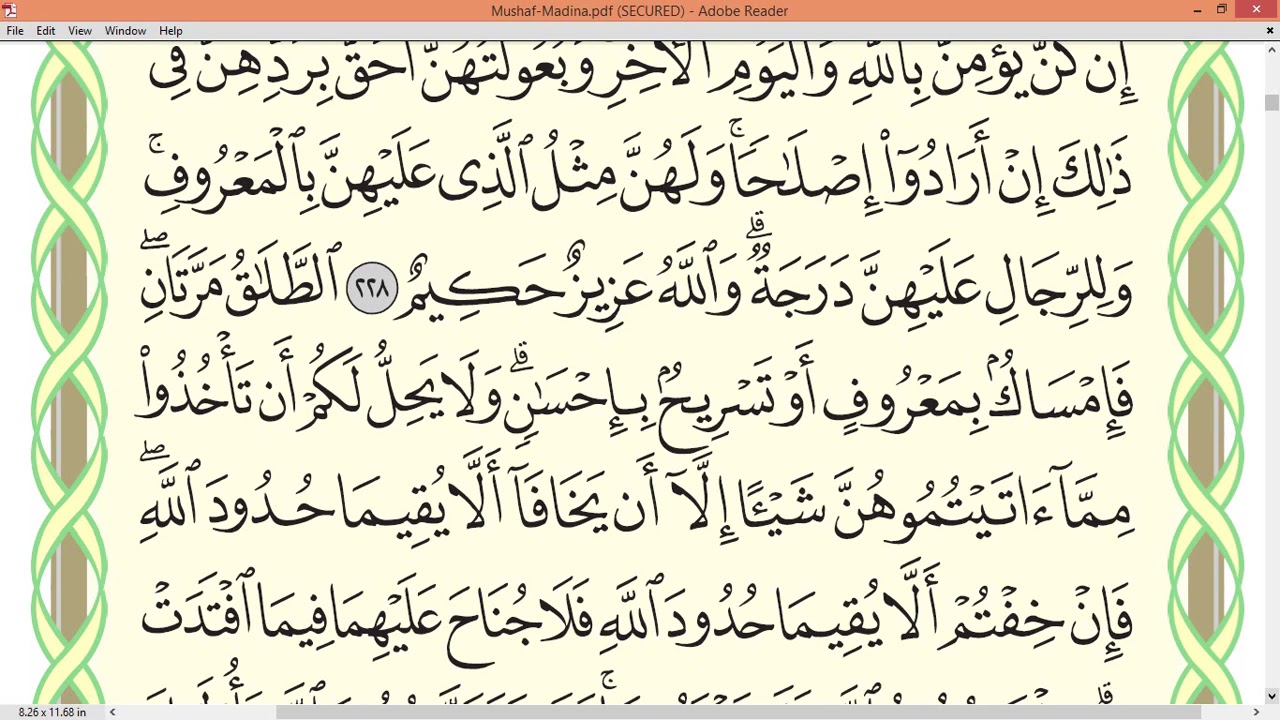 Mushaf-Madina.pdf (SECURED) - Adobe Reader
File Edit View Window Help
إِن كُنَّ يُؤْمِنَّ بِٱللَّهِ وَٱلْيَوْمِ ٱلْأَخِرِ وَبُعُولَتُهُنَّ أَحَقُّ بِرَدِّهِنَّ فِى
ذَٰلِكَ إِنْ أَرَادُوٓا۟ إِصْلَٰحًا ۚ وَلَهُنَّ مِثْلُ ٱلَّذِى عَلَيْهِنَّ بِٱلْمَعْرُوفِ ۚ
وَلِلرِّجَالِ عَلَيْهِنَّ دَرَجَةٌ ۗ وَٱللَّهُ عَزِيزٌ حَكِيمٌ ٢٢٨ ٱلطَّلَٰقُ مَرَّتَانِ ۖ
فَإِمْسَاكٌۢ بِمَعْرُوفٍ أَوْ تَسْرِيحٌۢ بِإِحْسَٰنٍ ۗ وَلَا يَحِلُّ لَكُمْ أَن تَأْخُذُوا۟
مِمَّآ ءَاتَيْتُمُوهُنَّ شَيْـًٔا إِلَّآ أَن يَخَافَآ أَلَّا يُقِيمَا حُدُودَ ٱللَّهِ ۖ
فَإِنْ خِفْتُمْ أَلَّا يُقِيمَا حُدُودَ ٱللَّهِ فَلَا جُنَاحَ عَلَيْهِمَا فِيمَا ٱفْتَدَتْ
8.26 x 11.68 in